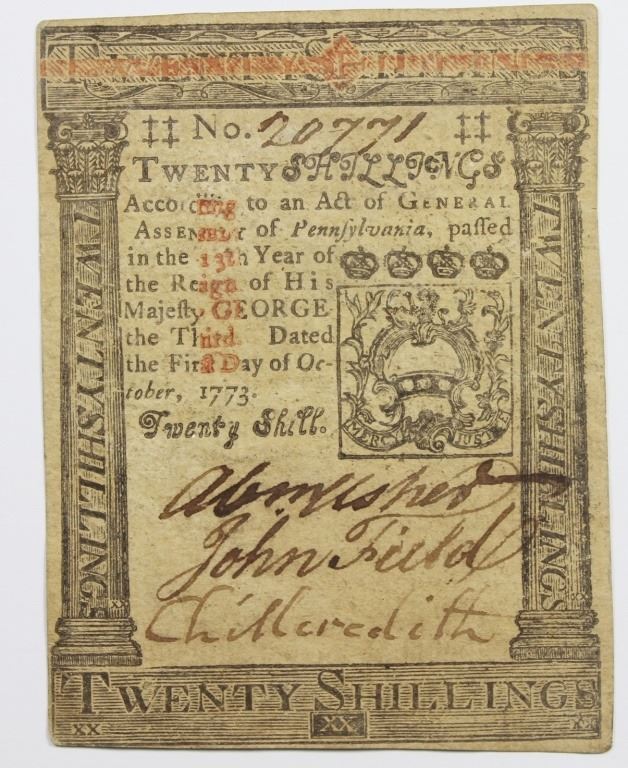 TWENTY SHILLINGS
‡‡ No. 20771 ‡‡
TWENTY SHILLINGS
According to an Act of GENERAL
ASSEMBLY of Pennſylvania, paſſed
in the 13th Year of
the Reign of His
Majeſty GEORGE
the Third. Dated
the Firſt Day of Oc-
tober, 1773.
Twenty Shill.
MERCY JUSTICE
TWENTY SHILLINGS
TWENTY SHILLINGS
John Field
Ch Meredith
XX XX
XX XX
TWENTY SHILLINGS
XX XX XX